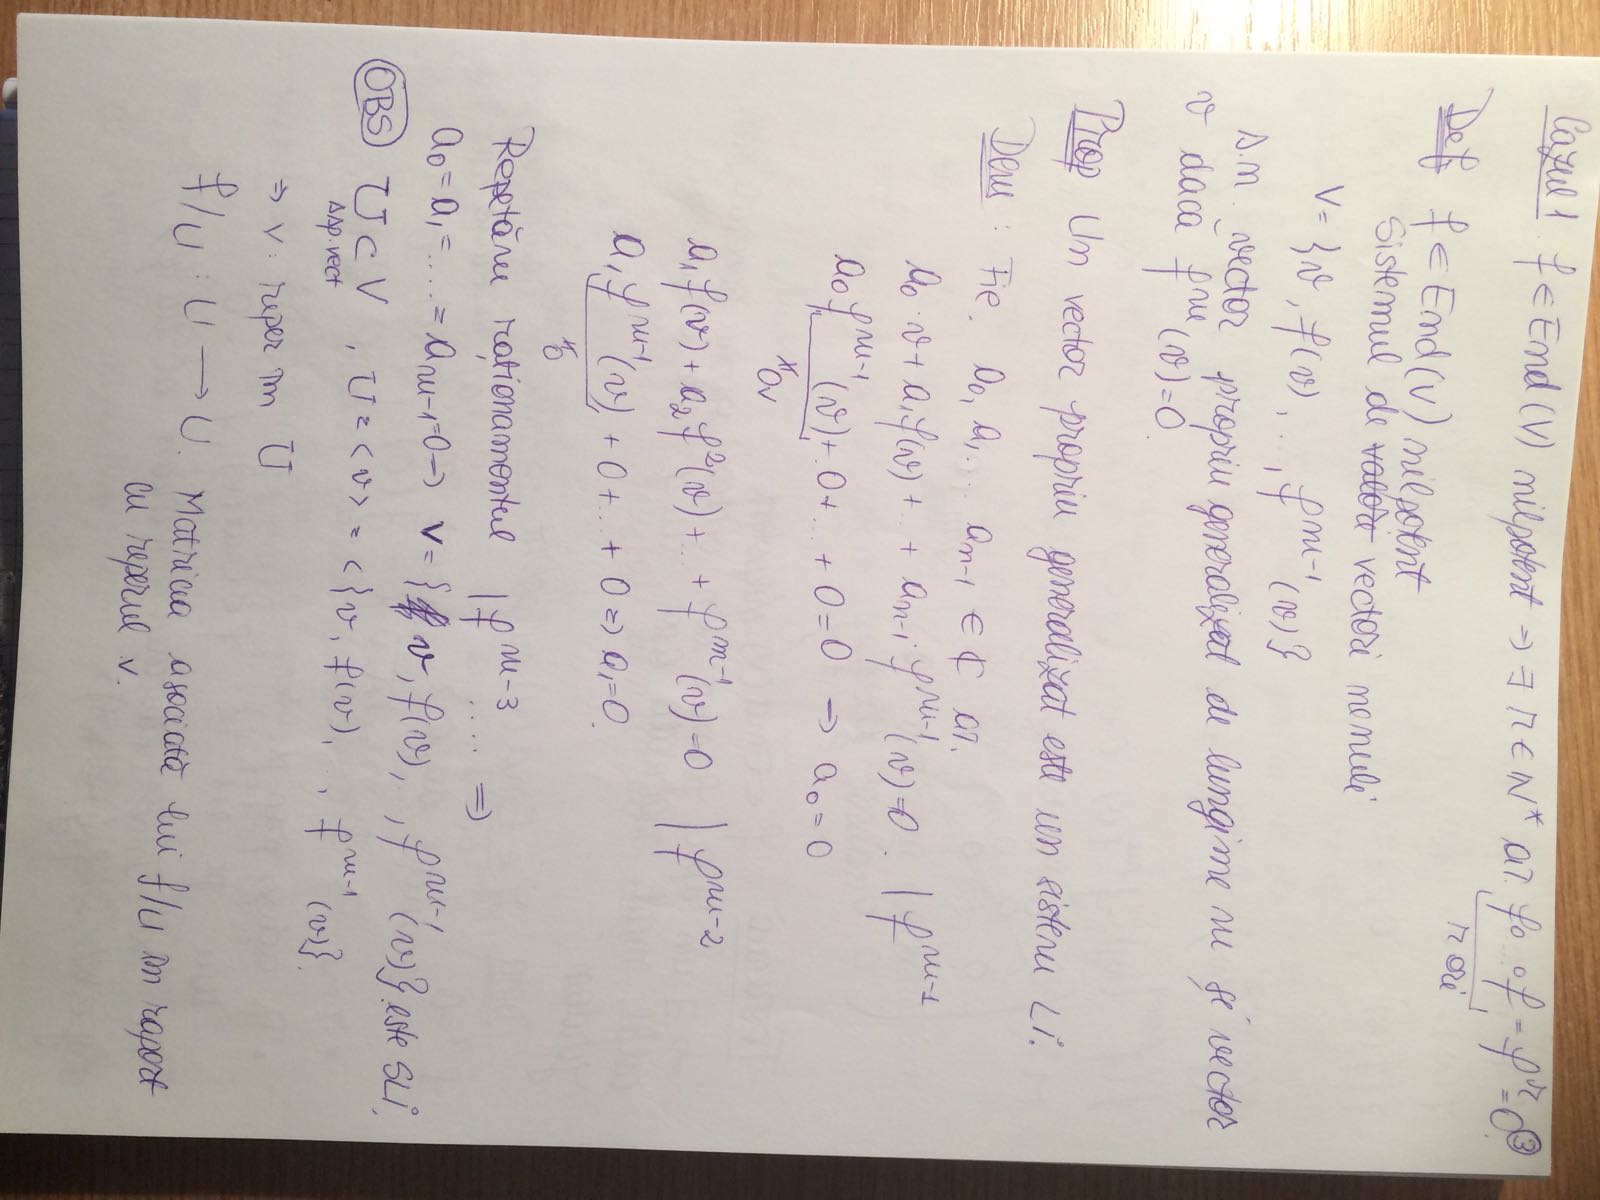 Cazul 1 f ∈ End(V) nilpotent ⇒ ∃ n ∈ N* aî. f∘...∘f = fⁿ = 0 ③
n ori
Def f ∈ End(V) nilpotent
Sistemul de vectori nenuli
V = {v, f(v), ..., f^{m-1}(v)}
s.n. vector propriu generalizat de lungime m și vector
v dacă f^m(v)=0.
Prop Un vector propriu generalizat este un sistem Li.
Dem : Fie a₀, a₁... a_{m-1} ∈ ₵ aî.
a₀·v + a₁f(v) + ... + a_{m-1}·f^{m-1}(v)=0. | f^{m-1}
a₀f^{m-1}(v) + 0 + ... + 0 = 0 → a₀ = 0
≠0ᵥ
a₁f(v) + a₂f²(v) + ... + f^{m-1}(v)=0 | f^{m-2}
a₁f^{m-1}(v) + 0 + ... + 0 ⇒ a₁=0.
≠0
Repetăm raționamentul | f^{m-3} .... ⇒
a₀ = a₁ = .... = a_{m-1}=0 → V = {v, f(v), , f^{m-1}(v)} este SLi.
OBS U ⊂ V , U = <v> = <{v, f(v), ..., f^{m-1}(v)}.
ssp.vect
⇒ V: reper în U
f/U : U → U. Matricea asociată lui f/U în raport
cu reperul V.